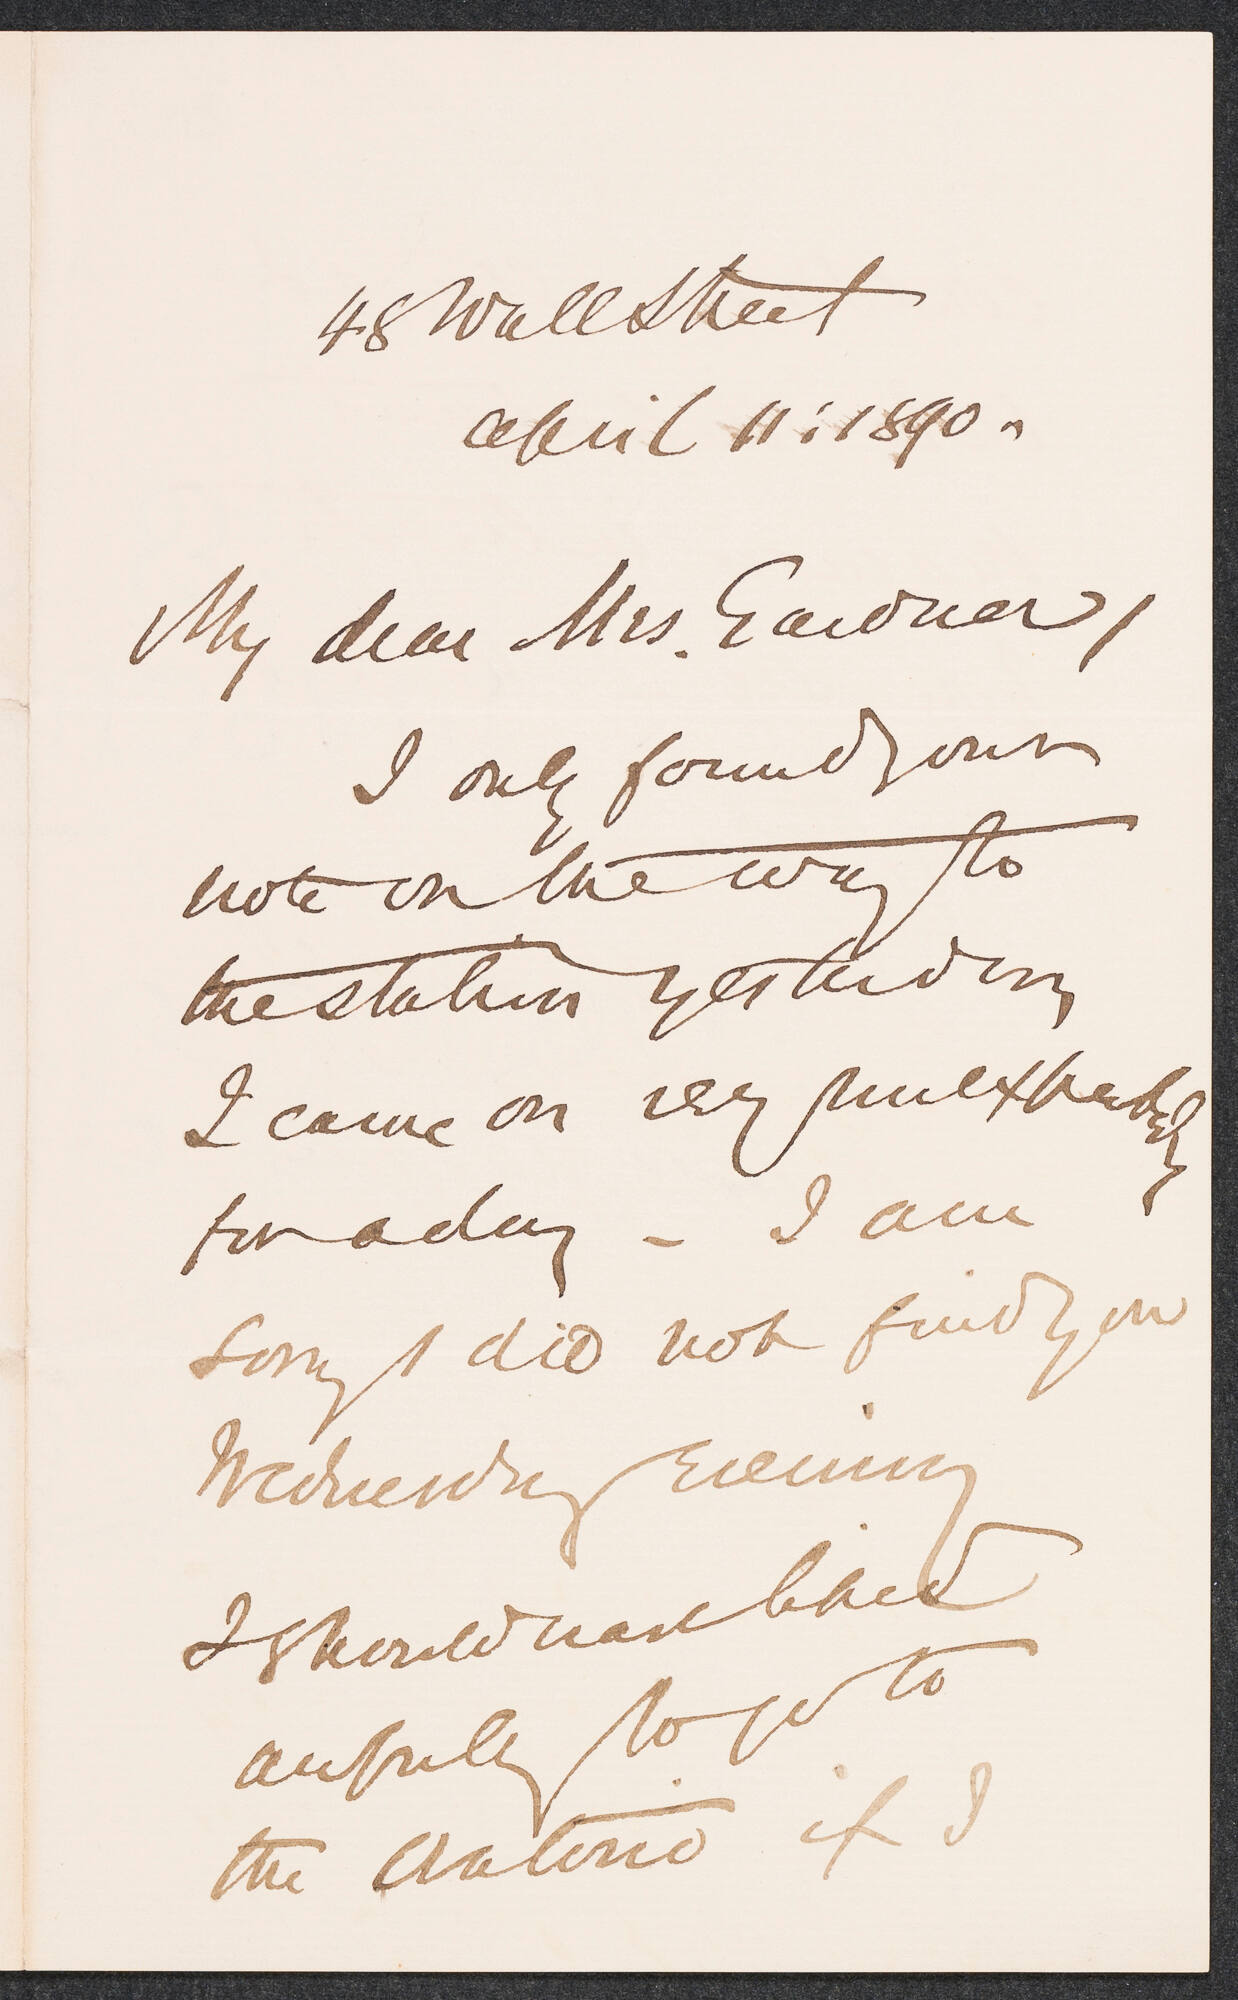 48 Wall Street
April 11: 1890.
My dear Mrs. Gardner,
I only found your
note on the way to
the station yesterday
I came on very unexpectedly
for a day – I am
sorry I did not find you
Wednesday evening
I should have liked
awfully to go to
the Oratorio if I